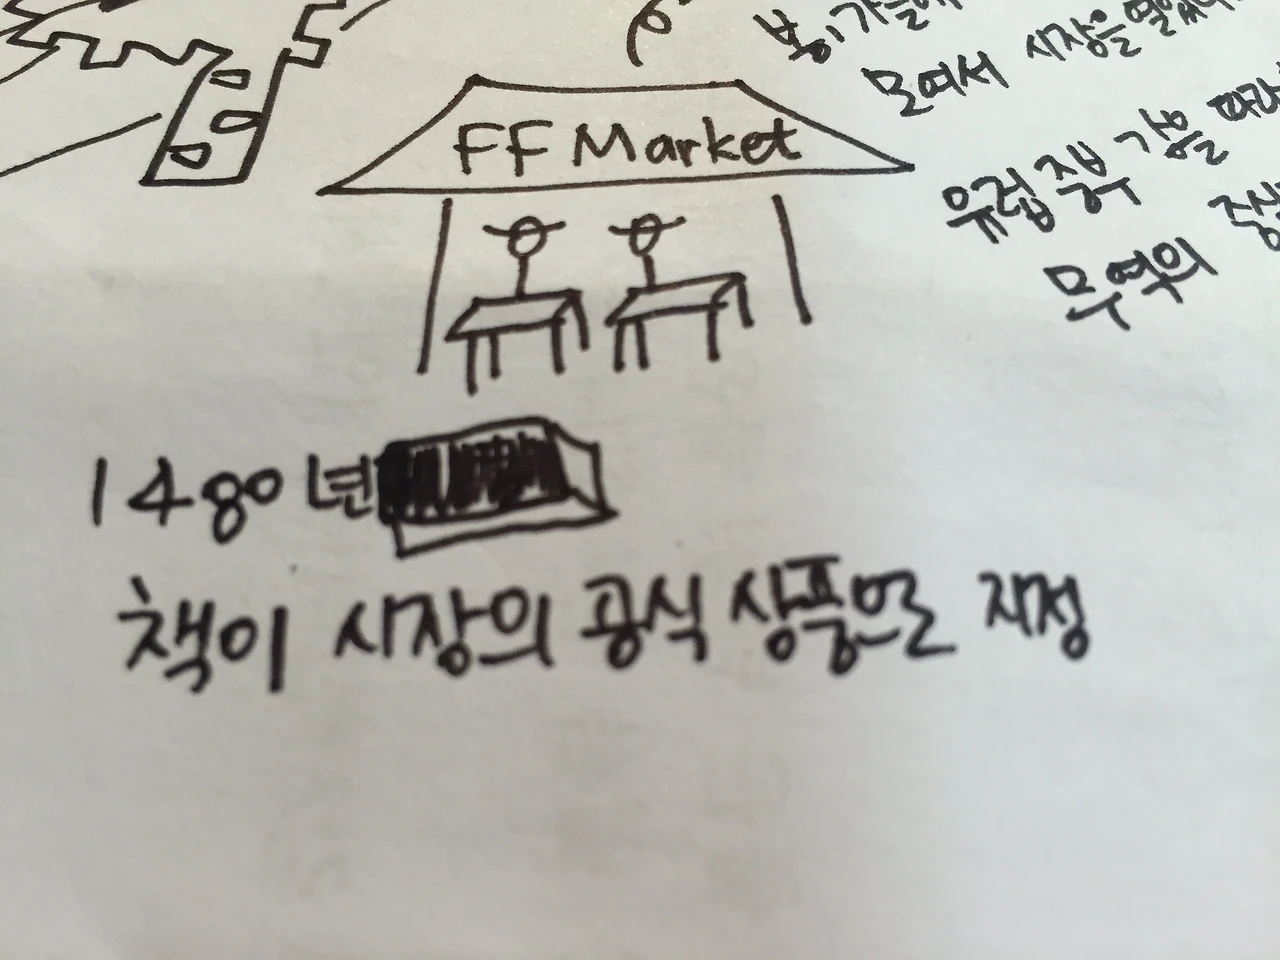 봄, 가을에
모여서 시장을 열었
FF Market
유럽 중부 길을 따라
무역의 중심
1480년
책이 시장의 공식 상품으로 지정